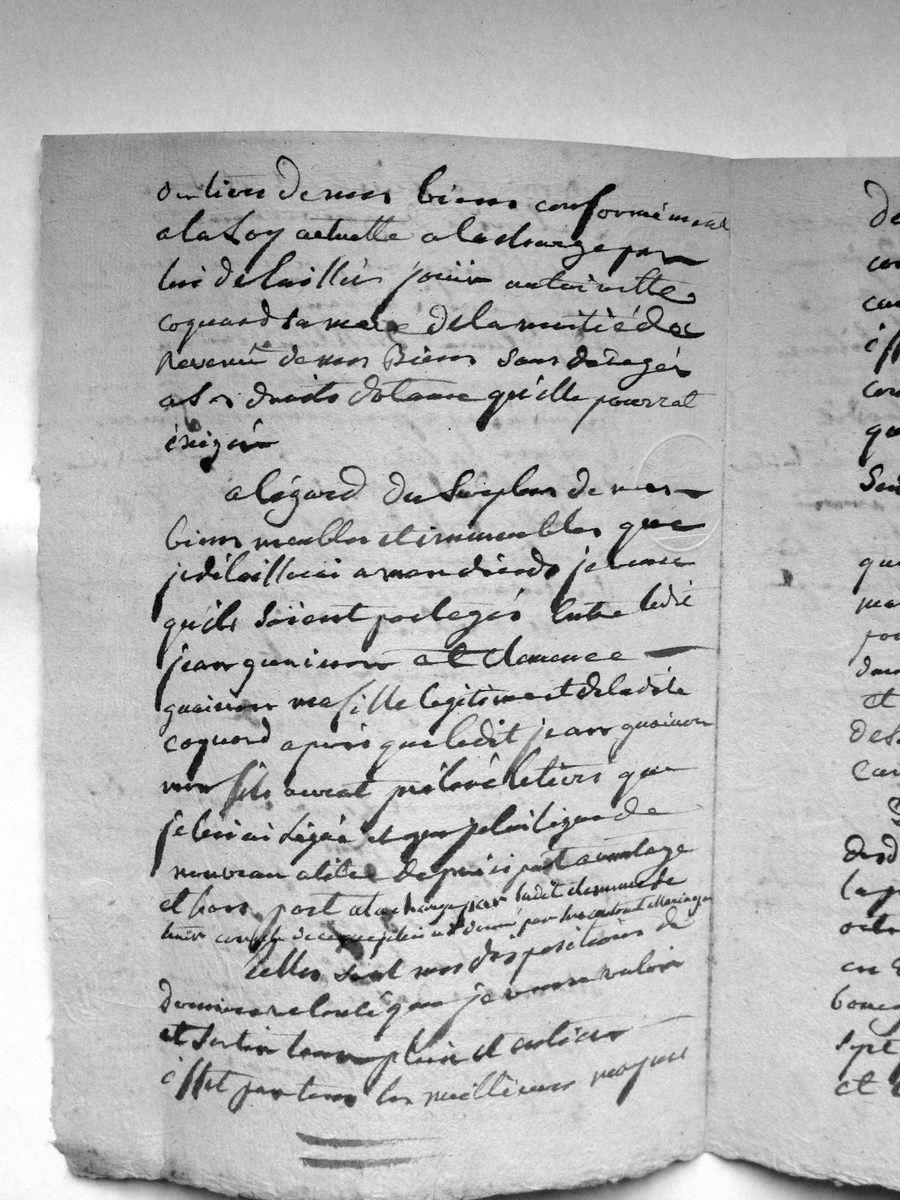 du tiers de mes biens conformément
a la Loy actuelle a la charge par
lui de laisser jouir antoinette
coquard sa mere de la moitié des
Revenu de mes Biens sans déroger
a ses droits dotaux qu'elle pourrat
éxiger
a légard du surplus de mes
biens meubles et immeubles que
je délaisserai a mon décéds je veux
qu'ils soient partagés Entre ledit
jean guainon et clemence
guainon ma fille legitime et de ladite
coquard apres que ledit jean guainon
mon fils aurat prélevé le tiers que
je lui ai Légué et que je lui legue de
nouveau a titre de préciput avantage
et hors part a la charge par ladite clemence de
tenir compte de ce que je lui ai donné par son contrat de Mariage
telles sont mes dispositions de
derniere volonté que je veux valoir
et sortir leur plein et entier
effet par tous les meilleurs moyens
De
con
et